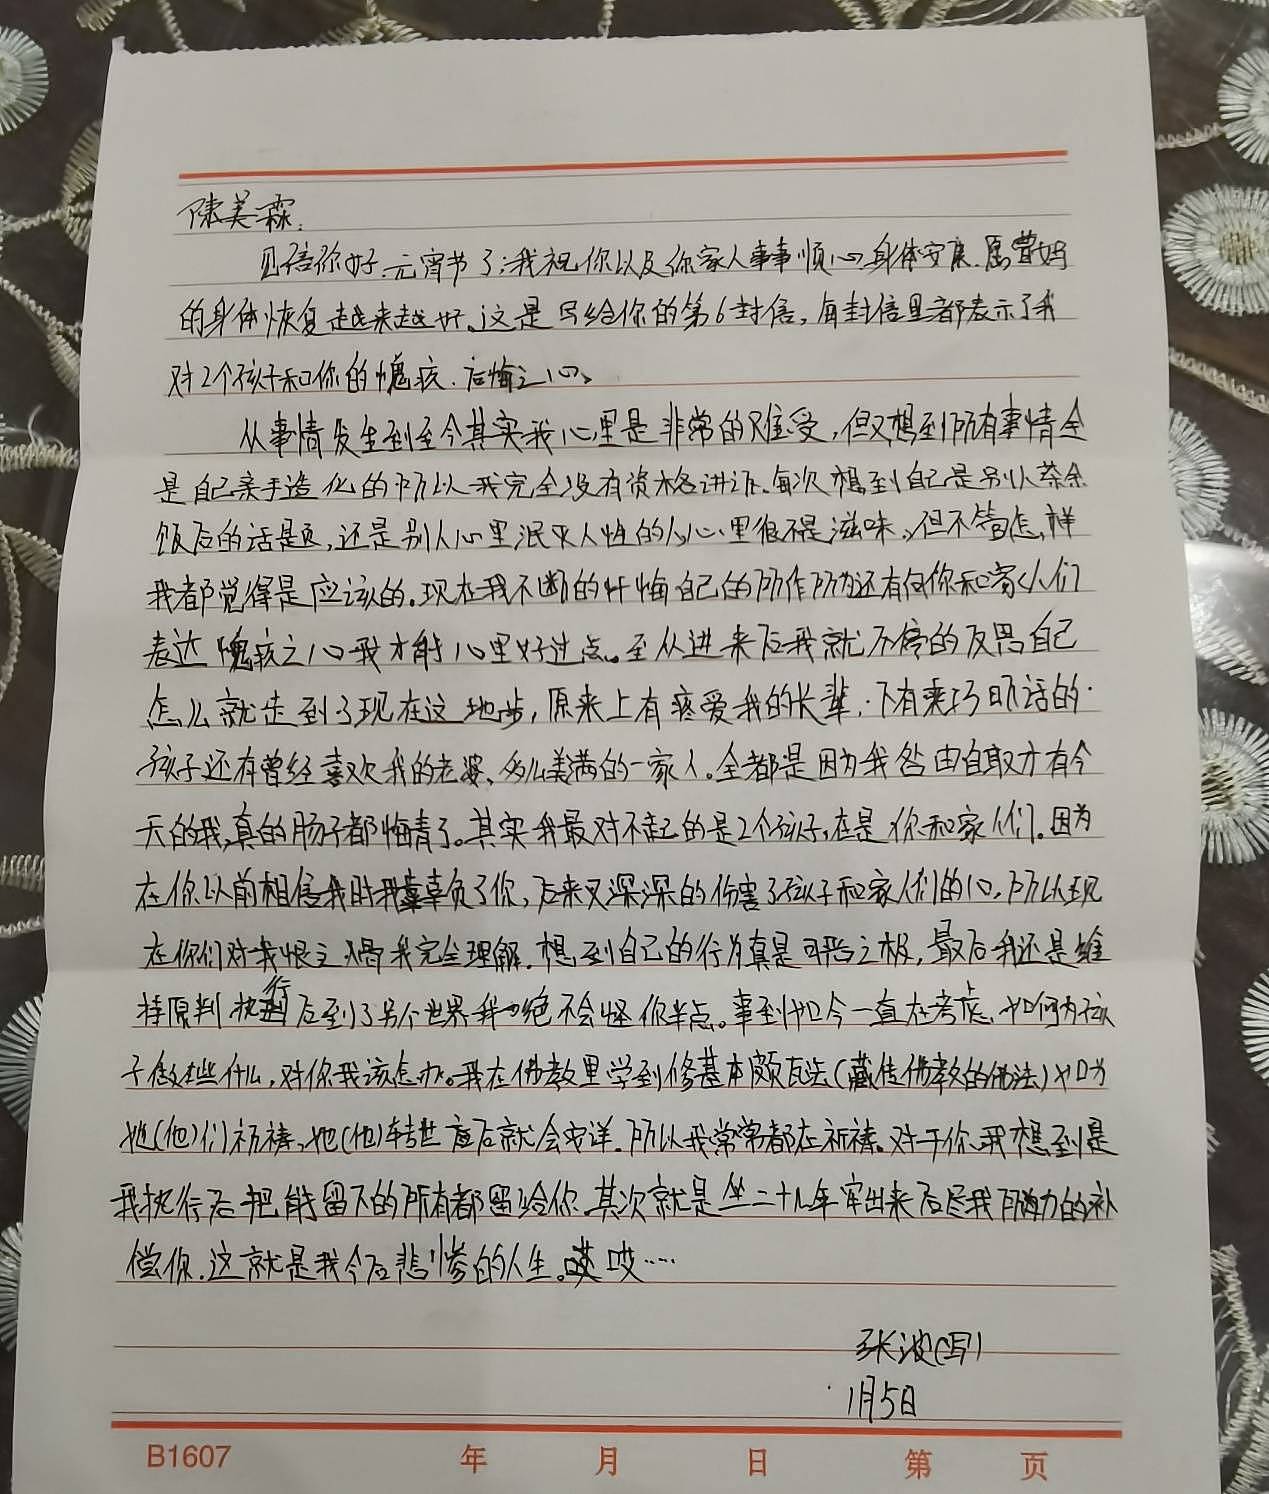 陈美霖:
见信你好.元宵节了;我祝你以及你家人事事顺心.身体安康.愿曾妈
的身体恢复越来越好。这是写给你的第6封信,每封信里都表示了我
对2个孩子和你的愧疚.后悔之心。
从事情发生到至今其实我心里是非常的难受,但又想到所有事情全
是自己亲手造化的所以我完全没有资格讲诉。每次想到自己是别人茶余
饭后的话题,还是别人心里泯灭人性的人心里很不是滋味。但不管怎样
我都觉得是应该的。现在我不断的忏悔自己的所作所为还有向你和家人们
表达愧疚之心我才能心里好过点。至从进来后我就不停的反思自己
怎么就走到了现在这地步,原来上有疼爱我的长辈,下有乘巧听话的
孩子还有曾经喜欢我的老婆、多么美满的一家人。全都是因为我咎由自取才有今
天的我,真的肠子都悔青了。其实我最对不起的是2个孩子,在是你和家人们。因为
在你以前相信我时我辜负了你,后来又深深的伤害了孩子和家人们的心,所以现
在你们对我恨之入骨我完全理解.想到自己的行为真是可恶之极,最后我还是维
持原判执行后到了另个世界我也绝不会怪你半点。事到如今一直在考虑.如何为孩
子做些什么,对你我该怎办。我在佛教里学到修基本颇瓦法(藏传佛教的佛法)如为
她(他)们祈祷,她(他)转世度后就会安详.所以我常常都在祈祷。对于你.我想到是
我执行后把能留下的所有都留给你.其次就是坐二十几年牢出来后尽我所能力的补
偿你.这就是我今后悲惨的人生。哎哎……
张波(写)
1月5日
B1607 年 月 日 第 页